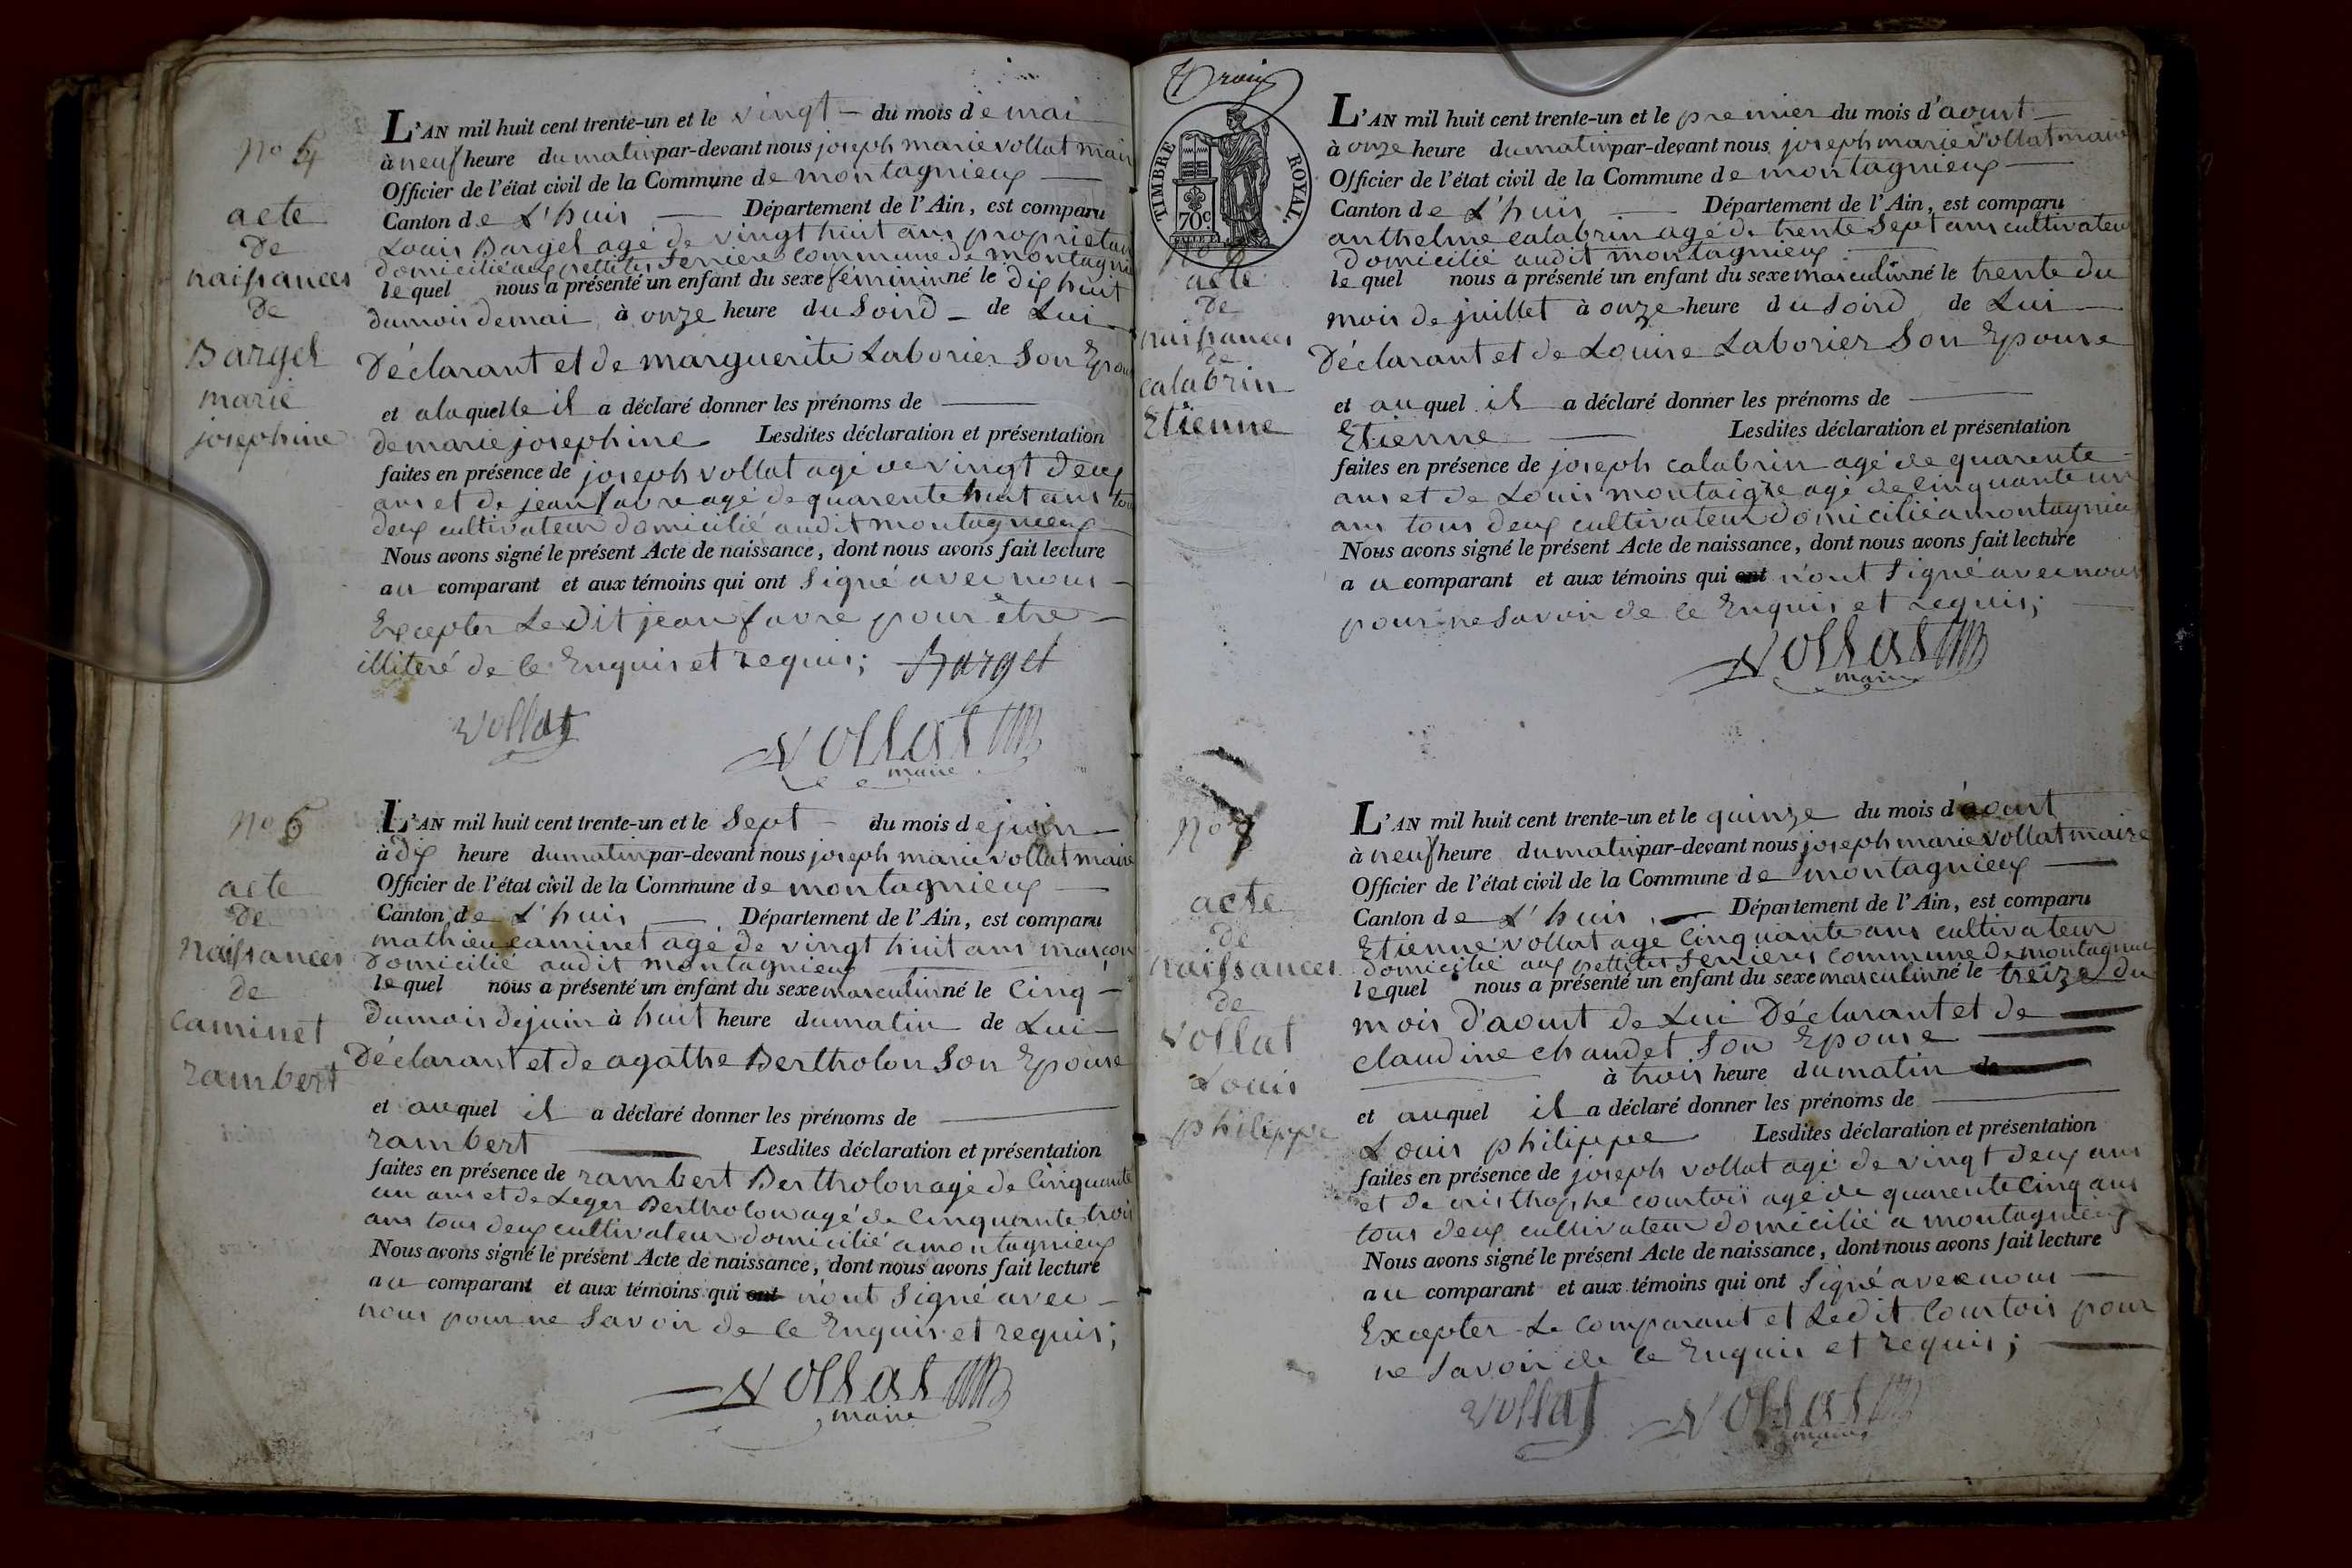 No 4
acte
de
naissances
de
Bargel
marie
josephine
L'AN mil huit cent trente-un et le vingt – du mois de mai
à neuf heure du matin par-devant nous joseph marie vollat maire
Officier de l'état civil de la Commune de montagnieux —
Canton de L'huis — Département de l'Ain, est comparu
Louis Bargel agé de vingt huit ans propriétaire
domicilié aux pettites Serrieres commune de montagnieu
lequel nous a présenté un enfant du sexe féminin né le dix huit
du mois de mai à onze heure du Soird – de Lui
Déclarant et de marguerite Laborier Son Epouse
et a laquelle il a déclaré donner les prénoms de —
de marie josephine Lesdites déclaration et présentation
faites en présence de joseph vollat agé de vingt deux
ans et de jean favre agé de quarente huit ans tous
deux cultivateur domicilié audit montagnieux
Nous avons signé le présent Acte de naissance, dont nous avons fait lecture
au comparant et aux témoins qui ont Signé avec nous –
Excepter Ledit jean favre pour être –
illiteré de ce Enquis et requis; Bargel
vollat vollat
maire
No 5
acte
de
naissances
de
caminet
rambert
L'AN mil huit cent trente-un et le Sept – du mois de juin –
à dix heure du matin par-devant nous joseph marie vollat maire
Officier de l'état civil de la Commune de montagnieux —
Canton de L'huis — Département de l'Ain, est comparu
mathieu caminet agé de vingt huit ans masçon
Domicilié audit montagnieux —
lequel nous a présenté un enfant du sexe masculin né le Cinq –
du mois de juin à huit heure du matin de Lui –
Déclarant et de agathe Bertholon Son Epouse
et auquel il a déclaré donner les prénoms de —
rambert — Lesdites déclaration et présentation
faites en présence de rambert Bertholon agé de Cinquante
un ans et de Leger Bertholon agé de Cinquante trois
ans tous deux cultivateur domicilié a montagnieux
Nous avons signé le présent Acte de naissance, dont nous avons fait lecture
au comparant et aux témoins qui ont n'ont Signé avec –
nous pour ne Savoir de ce Enquis et requis;
vollat
maire
Trois
TIMBRE ROYAL.
70c
acte
de
naissances
de
calabrin
Etienne
L'AN mil huit cent trente-un et le premier du mois d'aoust –
à onze heure du matin par-devant nous joseph marie vollat maire
Officier de l'état civil de la Commune de montagnieux —
Canton de L'huis — Département de l'Ain, est comparu
anthelme calabrin agé de trente Sept ans cultivateur
domicilié audit montagnieux —
lequel nous a présenté un enfant du sexe masculin né le trente du
mois de juillet à onze heure du Soird de Lui —
Déclarant et de Louise Laborier Son Epouse
et auquel il a déclaré donner les prénoms de —
Etienne — Lesdites déclaration et présentation
faites en présence de joseph calabrin agé de quarente
ans et de Louis montaigre agé de Cinquante un
ans tous deux cultivateur domicilié a montagnieu
Nous avons signé le présent Acte de naissance, dont nous avons fait lecture
au comparant et aux témoins qui ont n'ont Signé avec nous
pour ne Savoir de ce Enquis et requis; —
vollat
maire
No 7
acte
de
naissances
de
vollat
Louis
philippe
L'AN mil huit cent trente-un et le quinze du mois d'aoust
à neuf heure du matin par-devant nous joseph marie vollat maire
Officier de l'état civil de la Commune de montagnieux —
Canton de L'huis — Département de l'Ain, est comparu
Etienne vollat agé Cinquante ans cultivateur
domicilié aux pettites Serrieres commune de montagnieu
lequel nous a présenté un enfant du sexe masculin né le treize du
mois d'aoust de Lui Déclarant et de —
claudine chaudet Son Epouse —
à trois heure du matin de —
et auquel il a déclaré donner les prénoms de —
Louis philippe Lesdites déclaration et présentation
faites en présence de joseph vollat agé de vingt deux ans
et de cristhophe courtois agé de quarente Cinq ans
tous deux cultivateur domicilié a montagnieux
Nous avons signé le présent Acte de naissance, dont nous avons fait lecture
au comparant et aux témoins qui ont Signé avec nous —
Excepter Le comparant et Ledit Courtois pour
ne Savoir de ce Enquis et requis; —
vollat vollat
maire